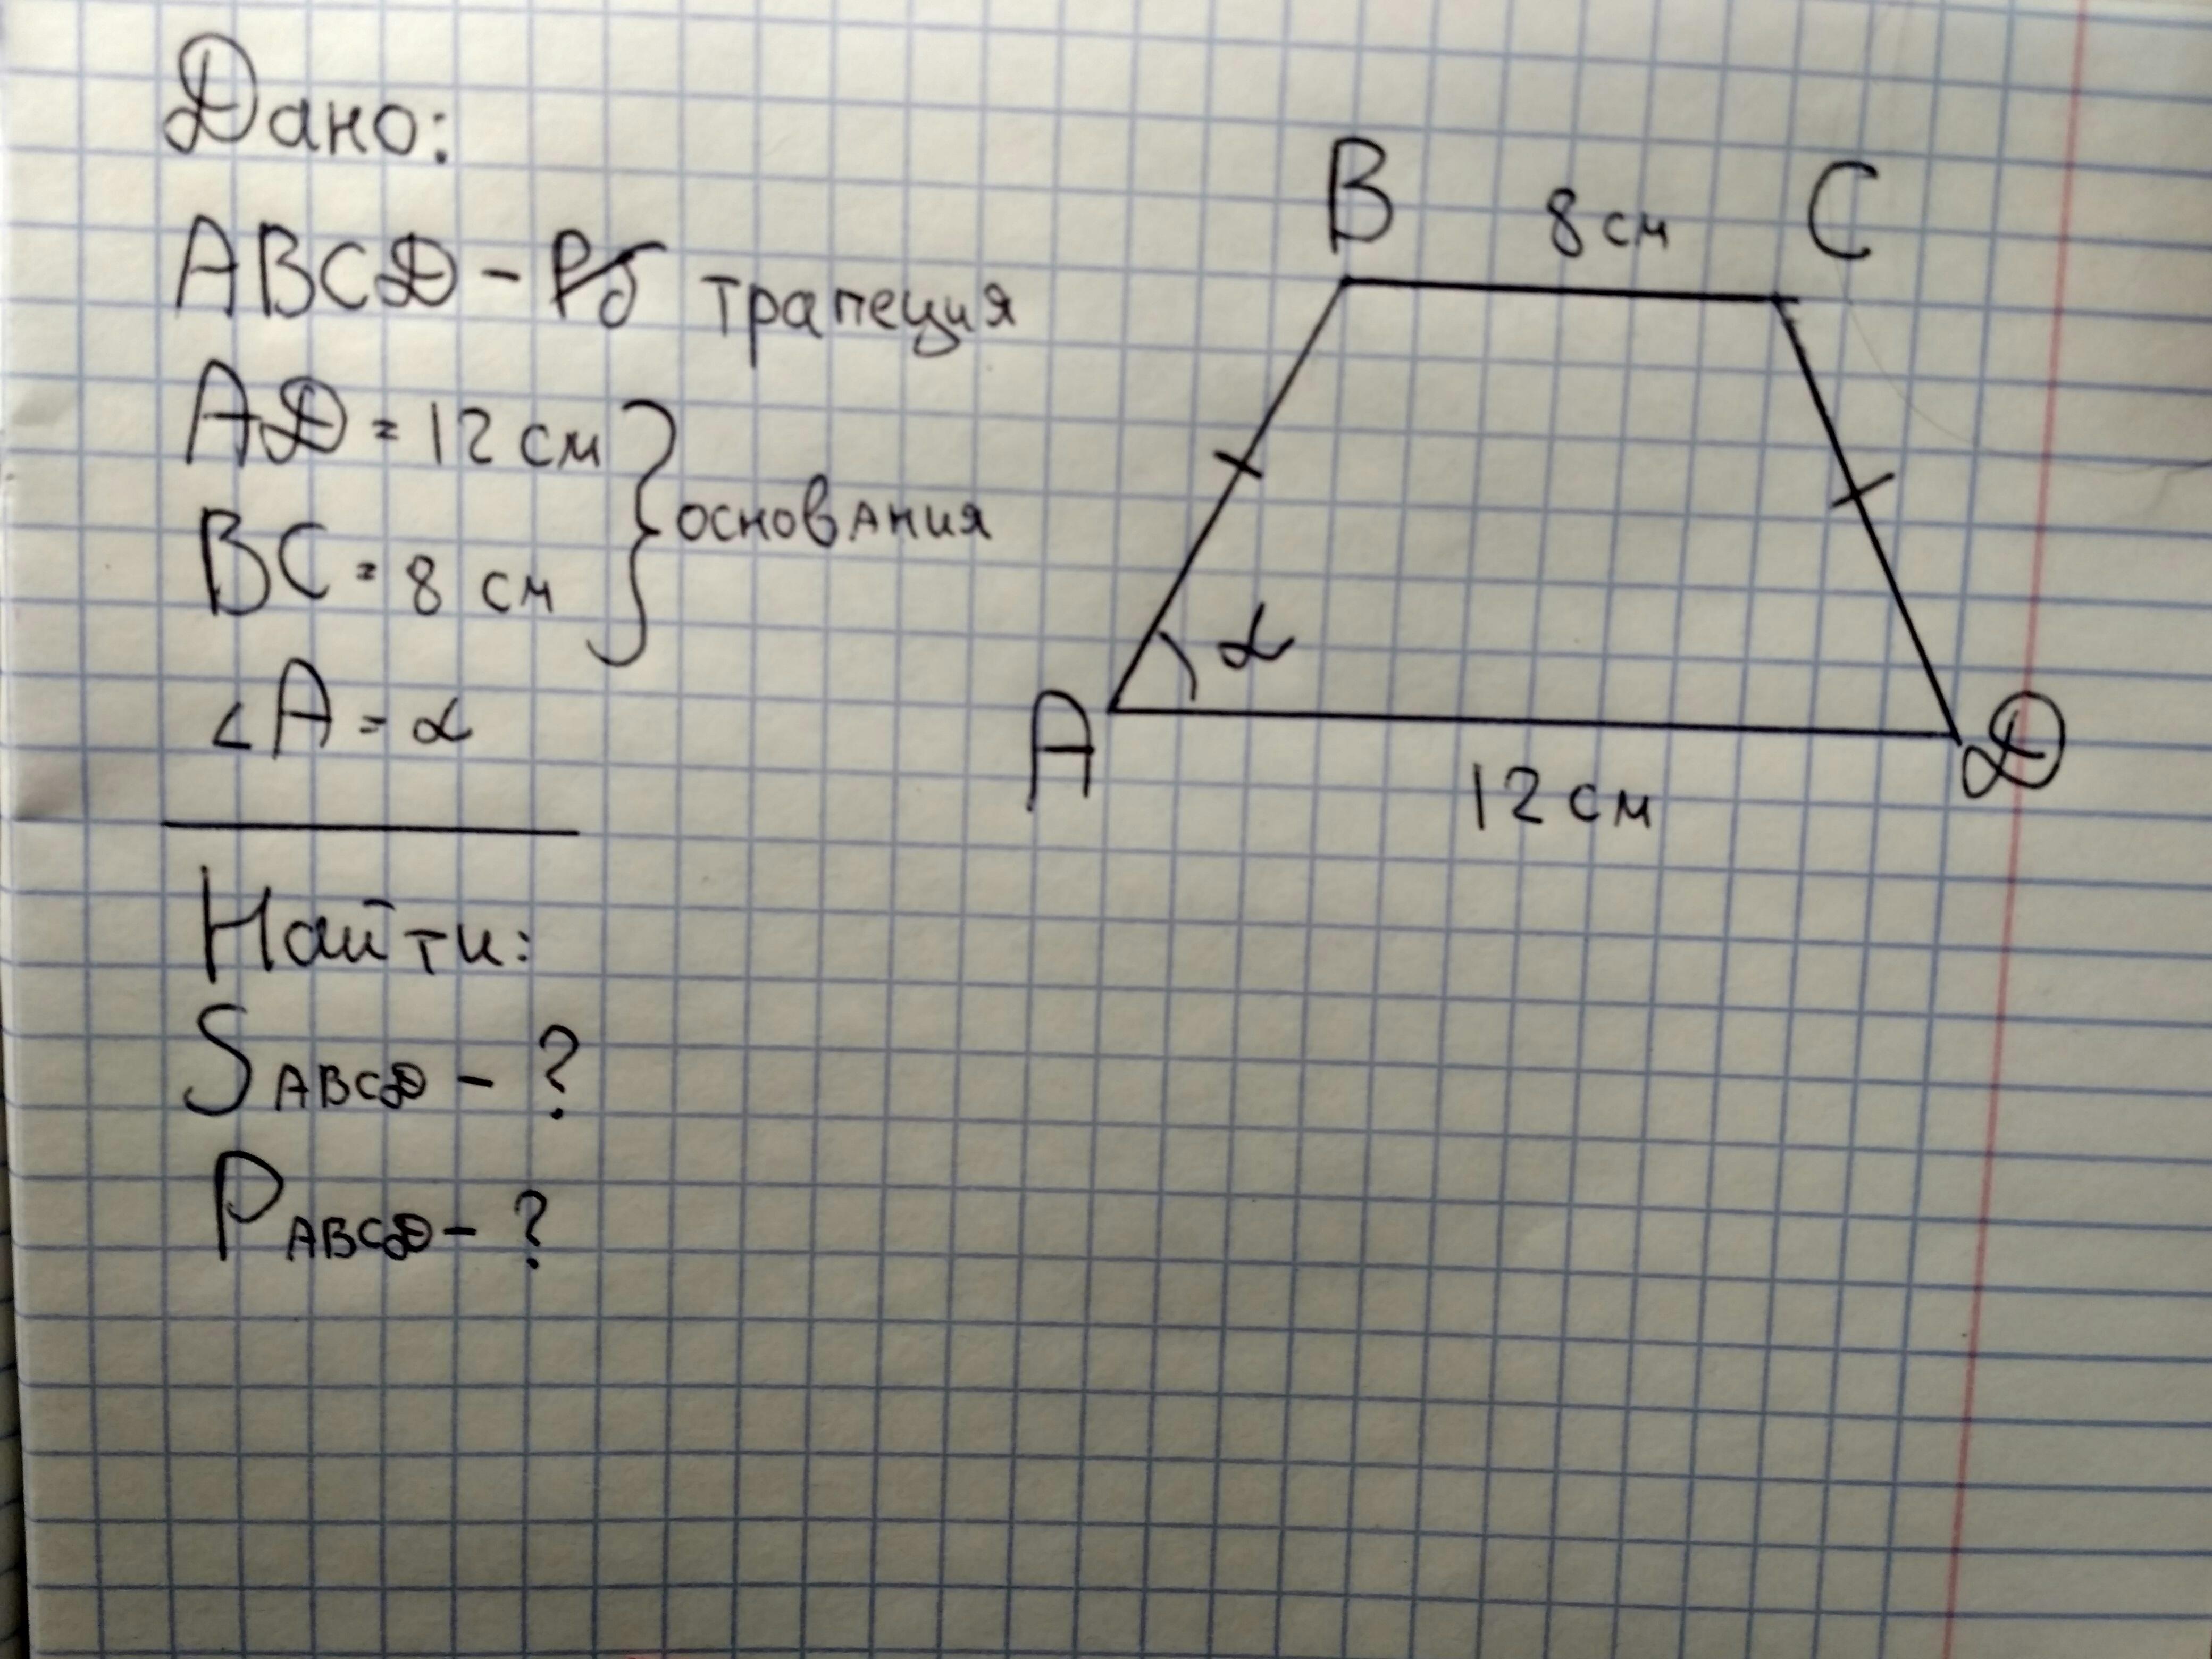 Дано:
ABCD - Рб трапеция
AD = 12 см
BC = 8 см
основания
∠A = α
Найти:
S ABCD - ?
P ABCD - ?
B 8 см C
α
A D
12 см